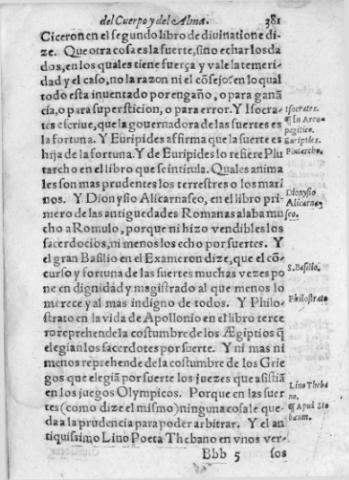 del Cuerpo y del Alma. 381
Ciceron en el segundo libro de diuinatione di-
ze. Que otra cosa es la suerte, sino echar los da
dos, en los quales tiene fuerça y vale la temeri-
dad y el caso, no la razon ni el cõsejo: en lo qual
todo esta inuentado por engaño, o para ganã
cia, o para supersticion, o para error. Y Isocra-
tes escriue, que la gouernadora de las suertes es
la fortuna. Y Euripides affirma que la suerte es
hija de la fortuna. Y de Euripides lo refiere Plu
tarcho en el libro que se intitula. Quales anima
les son mas prudentes los terrestres o los mari
nos. Y Dionysio Alicarnaseo, en el libro pri-
mero de las antiguedades Romanas alaba mu
cho a Romulo, porque ni hizo vendibles los
sacerdocios, ni menos los echo por suertes. Y
el gran Basilio en el Exameron dize, que el cõ-
curso y fortuna de las suertes muchas vezes po
ne en dignidad y magistrado al que menos lo
merece y al mas indigno de todos. Y Philo-
strato en la vida de Apollonio en el libro terce
ro reprehende la costumbre de los Ægiptios q̃
elegian los sacerdotes por suerte. Y ni mas ni
menos reprehende de la costumbre de los Grie
gos que elegiã por suerte los juezes que asistiã
en los juegos Olympicos. Porque en las suer
tes (como dize el mismo) ninguna cosa le que-
da a la prudencia para poder arbitrar. Y el an
tiquissimo Lino Poeta Thebano en vnos ver-
Bbb 5 sos
Isocrates.
¶ In Areo
pagitico.
Euripides.
Plutarcho.
Dionysio
Alicarna-
seo.
S. Basilio.
Philostrato
Lino Theba
no.
¶ Apud Sto
bæum.